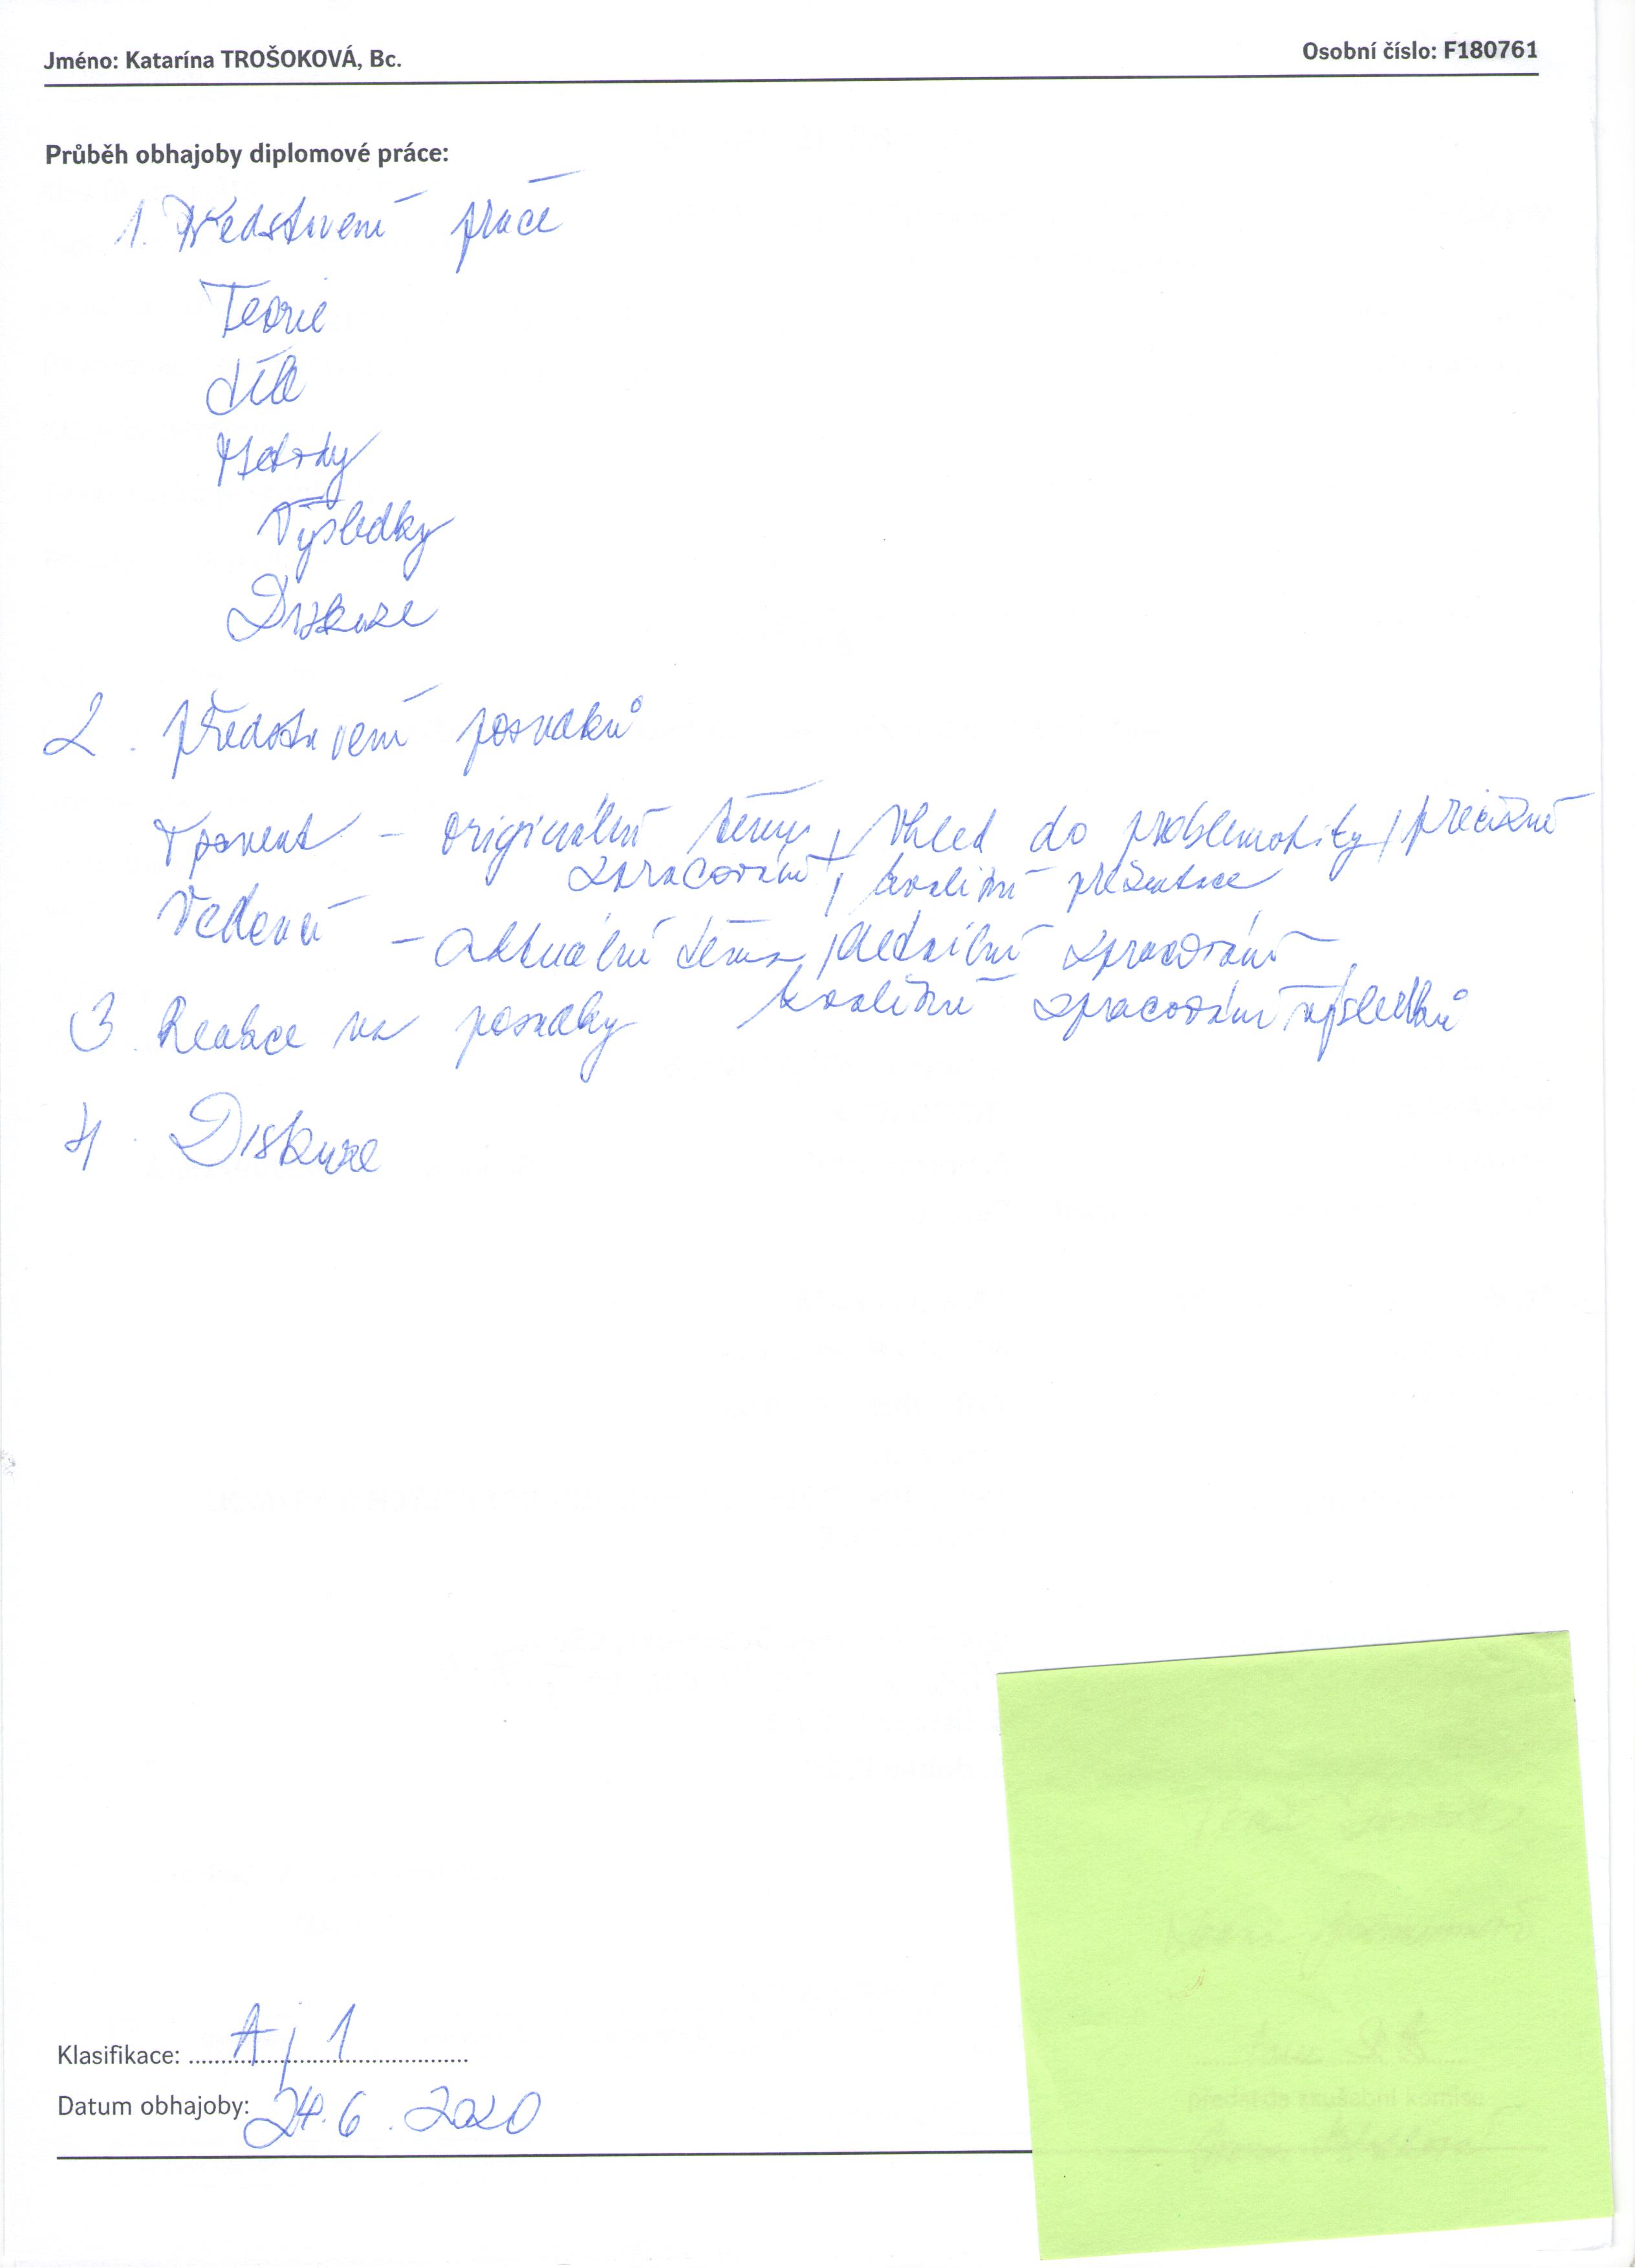 Jméno: Katarína TROŠOKOVÁ, Bc. Osobní číslo: F180761
Průběh obhajoby diplomové práce:
1. Představení práce
Teorie
Cíle
Metody
Výsledky
Diskuze
2. Představení posudků
Oponent – originální téma, vhled do problematiky, precizní
zpracování, kvalitní prezentace
Vedoucí – aktuální téma, detailní zpracování,
kvalitní zpracování výsledků
3. Reakce na posudky
4. Diskuze
Klasifikace: A/1
Datum obhajoby: 24. 6. 2020